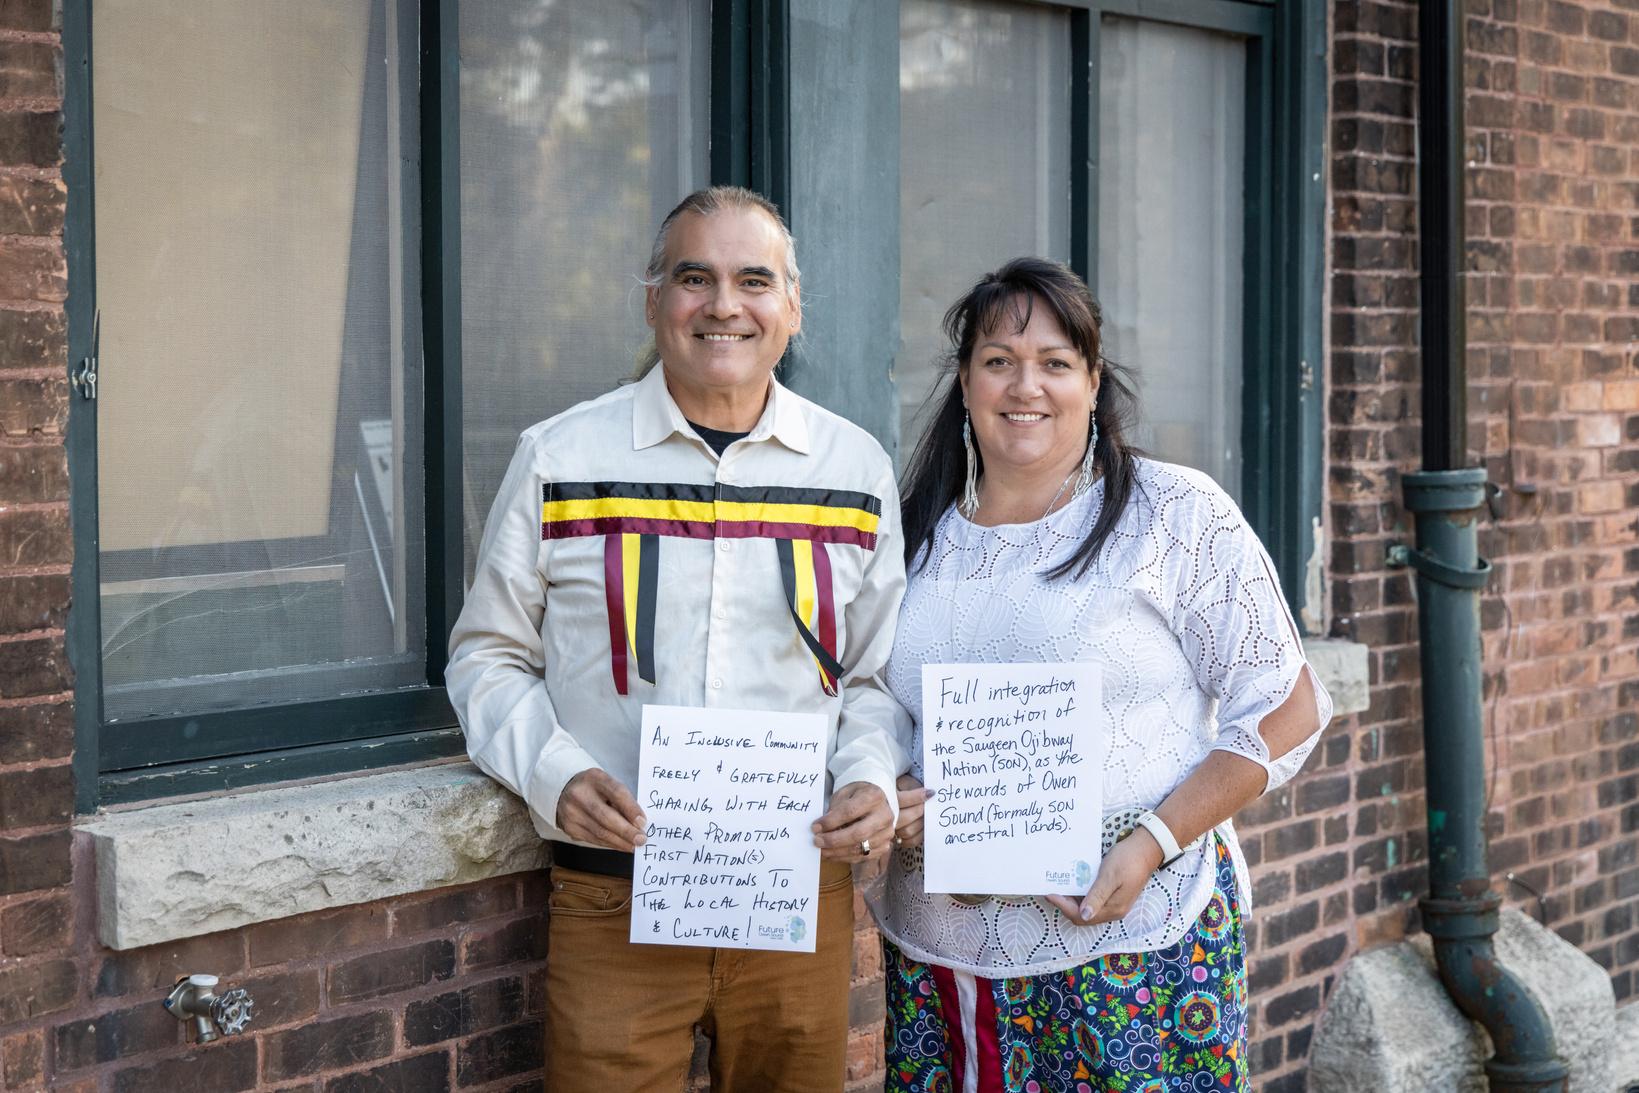 AN INCLUSIVE COMMUNITY
FREELY & GRATEFULLY
SHARING WITH EACH
OTHER PROMOTING
FIRST NATION(S)
CONTRIBUTIONS TO
THE LOCAL HISTORY
& CULTURE!
Future
Owen Sound
Full integration
& recognition of
the Saugeen Ojibway
Nation (SON), as the
stewards of Owen
Sound (formally SON
ancestral lands).
Future
Owen Sound